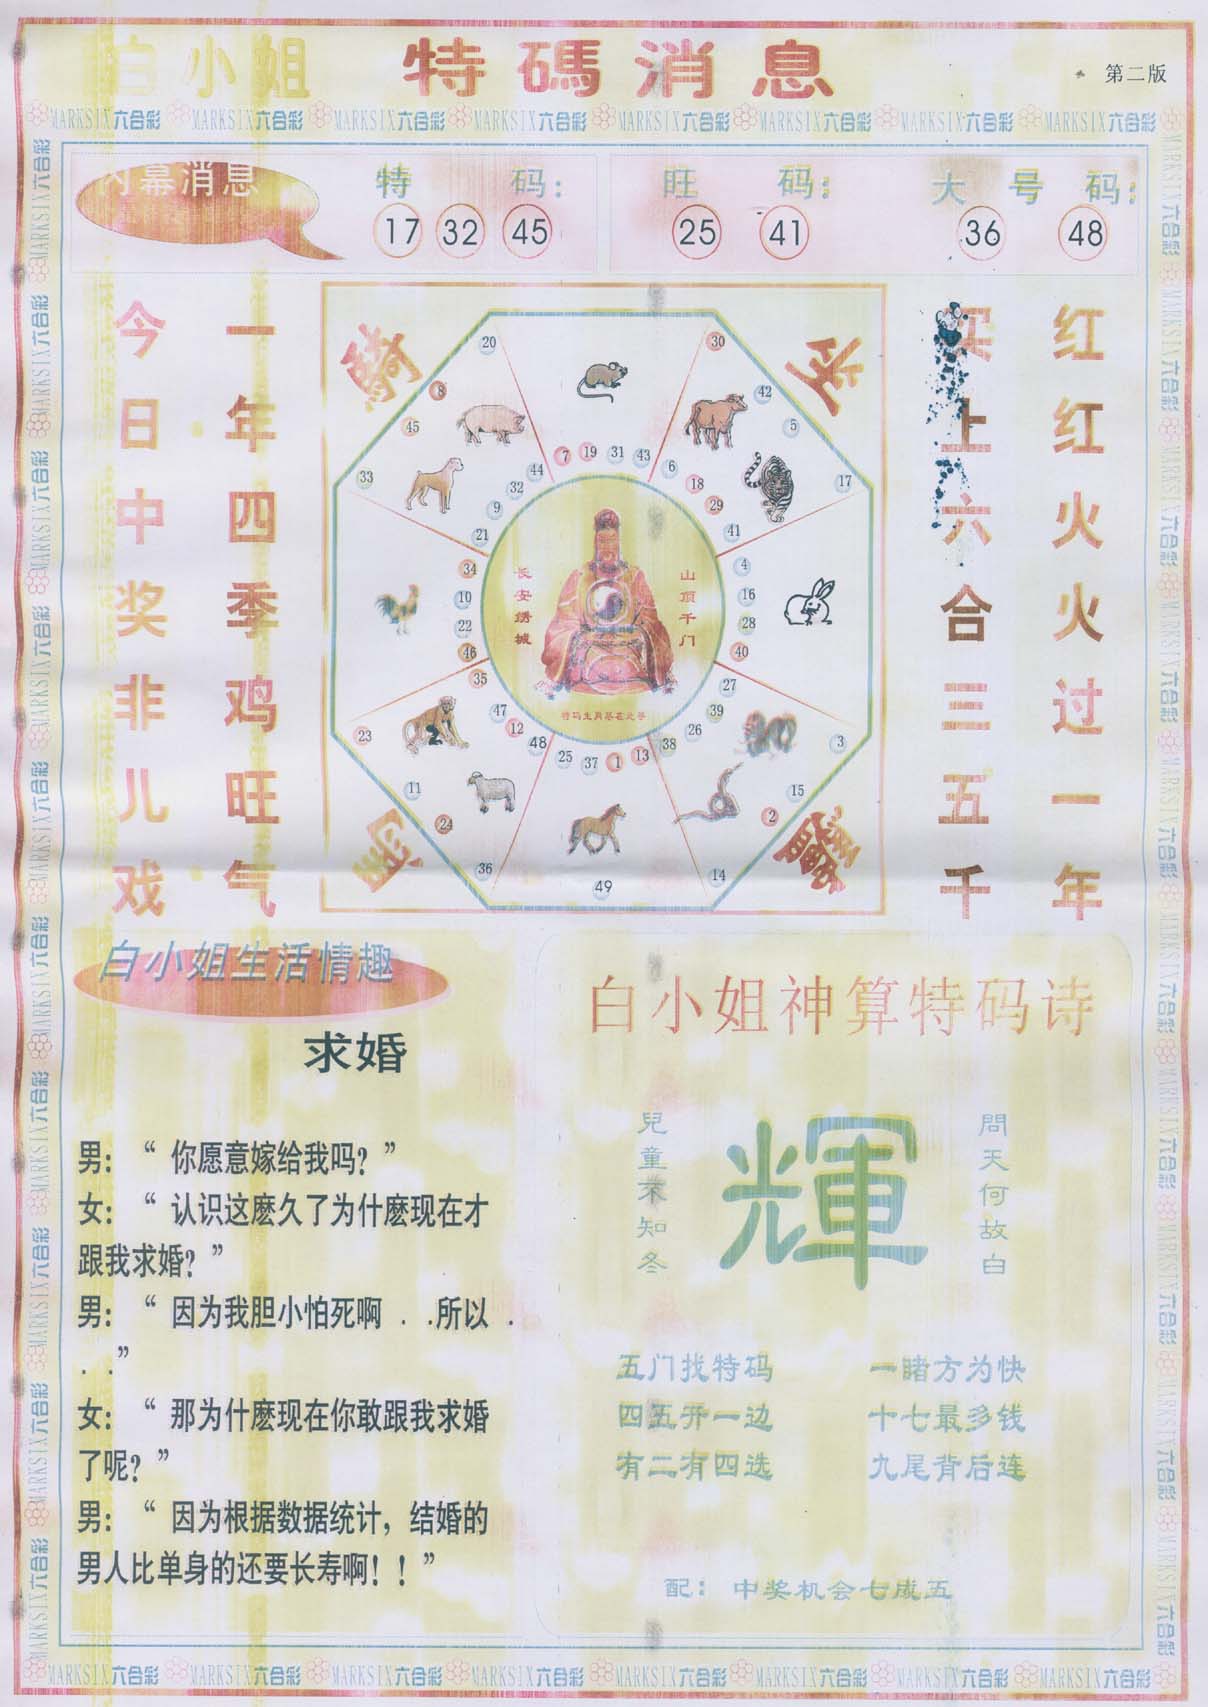 白小姐 特碼消息
第二版
MARKSIX六合彩 MARKSIX六合彩 MARKSIX六合彩 MARKSIX六合彩 MARKSIX六合彩 MARKSIX六合彩 MARKSIX六合彩 MARKSIX六合彩
内幕消息
特码:
17 32 45
旺码:
25 41
大号码:
36 48
今日中奖非儿戏
一年四季鸡旺气
买上六合三五千
红红火火过一年
20 30
8 42
45 5
33 44 7 19 31 43 6 17
32 18
9 29
21 41
34 4
10 16
22 28
46 40
35 27
47 39
23 12 26 3
48 25 37 1 13 38
11 15
24 2
36 14
49
长安绣城
山顶千门
特码生肖尽在此寻
白小姐生活情趣
求婚
男:“你愿意嫁给我吗?”
女:“认识这麽久了为什麽现在才
跟我求婚?”
男:“因为我胆小怕死啊 . .所以 .
. .”
女:“那为什麽现在你敢跟我求婚
了呢?”
男:“因为根据数据统计，结婚的
男人比单身的还要长寿啊!!”
白小姐神算特码诗
兒童不知冬
輝
問天何故白
五门找特码 一睹方为快
四五开一边 十七最多钱
有二有四选 九尾背后连
配: 中奖机会七成五
MARKSIX六合彩 MARKSIX六合彩 MARKSIX六合彩 MARKSIX六合彩 MARKSIX六合彩 MARKSIX六合彩 MARKSIX六合彩 MARKSIX六合彩